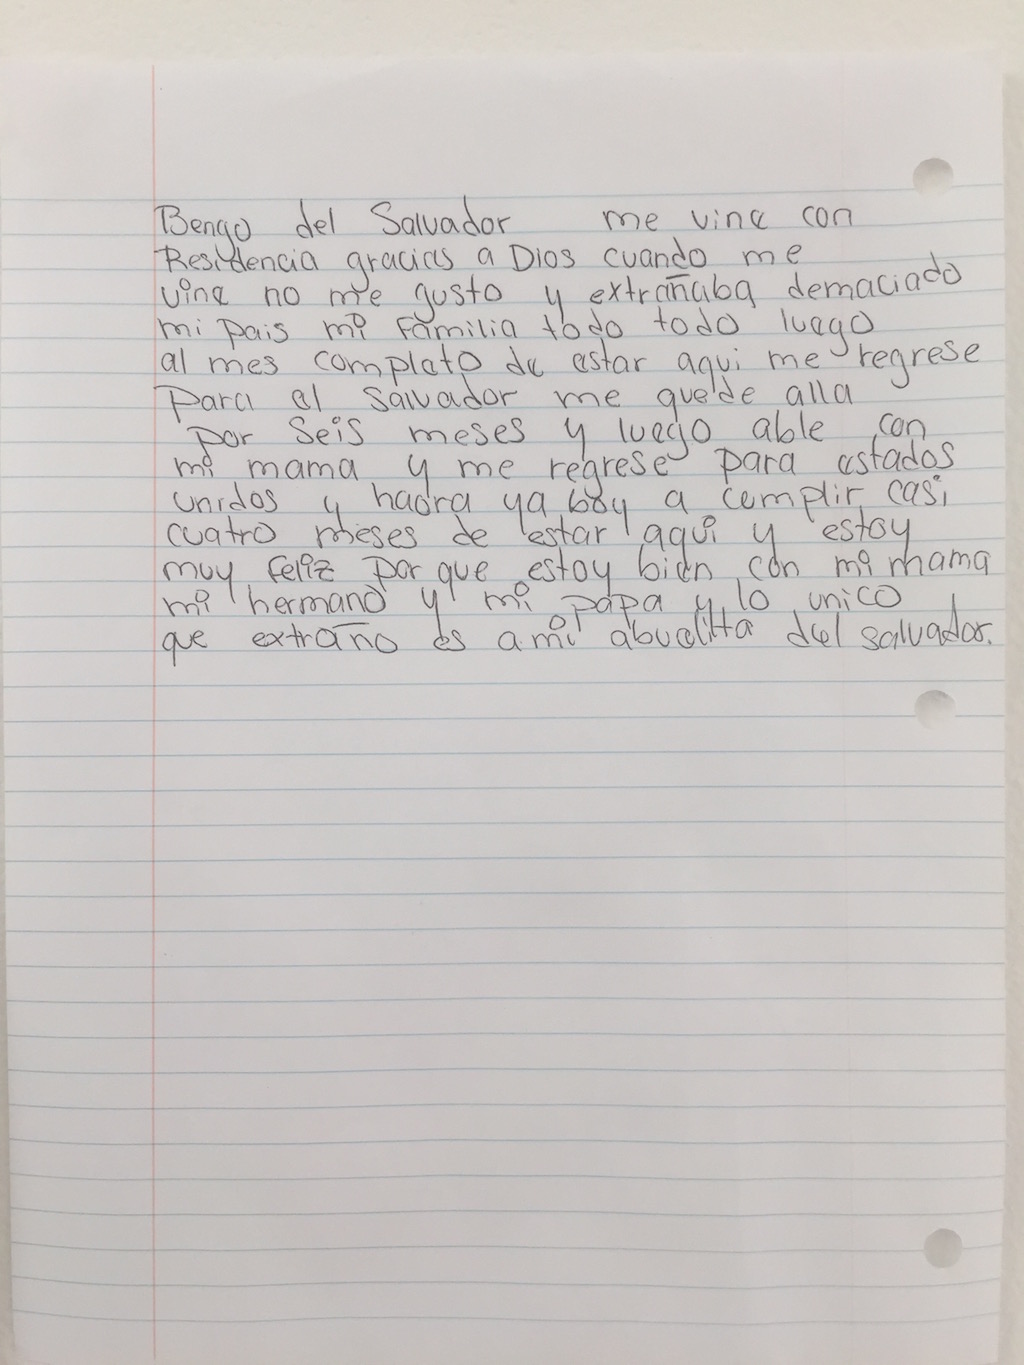 Bengo del Salvador me vine con
Residencia gracias a Dios cuando me
vine no me gusto y extrañaba demaciado
mi pais mi familia todo todo luego
al mes completo de estar aqui me regrese
para el Salvador me quede alla
por seis meses y luego able con
mi mama y me regrese para estados
unidos y haora ya boy a cumplir casi
cuatro meses de estar aqui y estoy
muy feliz por que estoy bien con mi mama
mi hermano y mi papa y lo unico
que extraño es a mi abuelita del salvador.